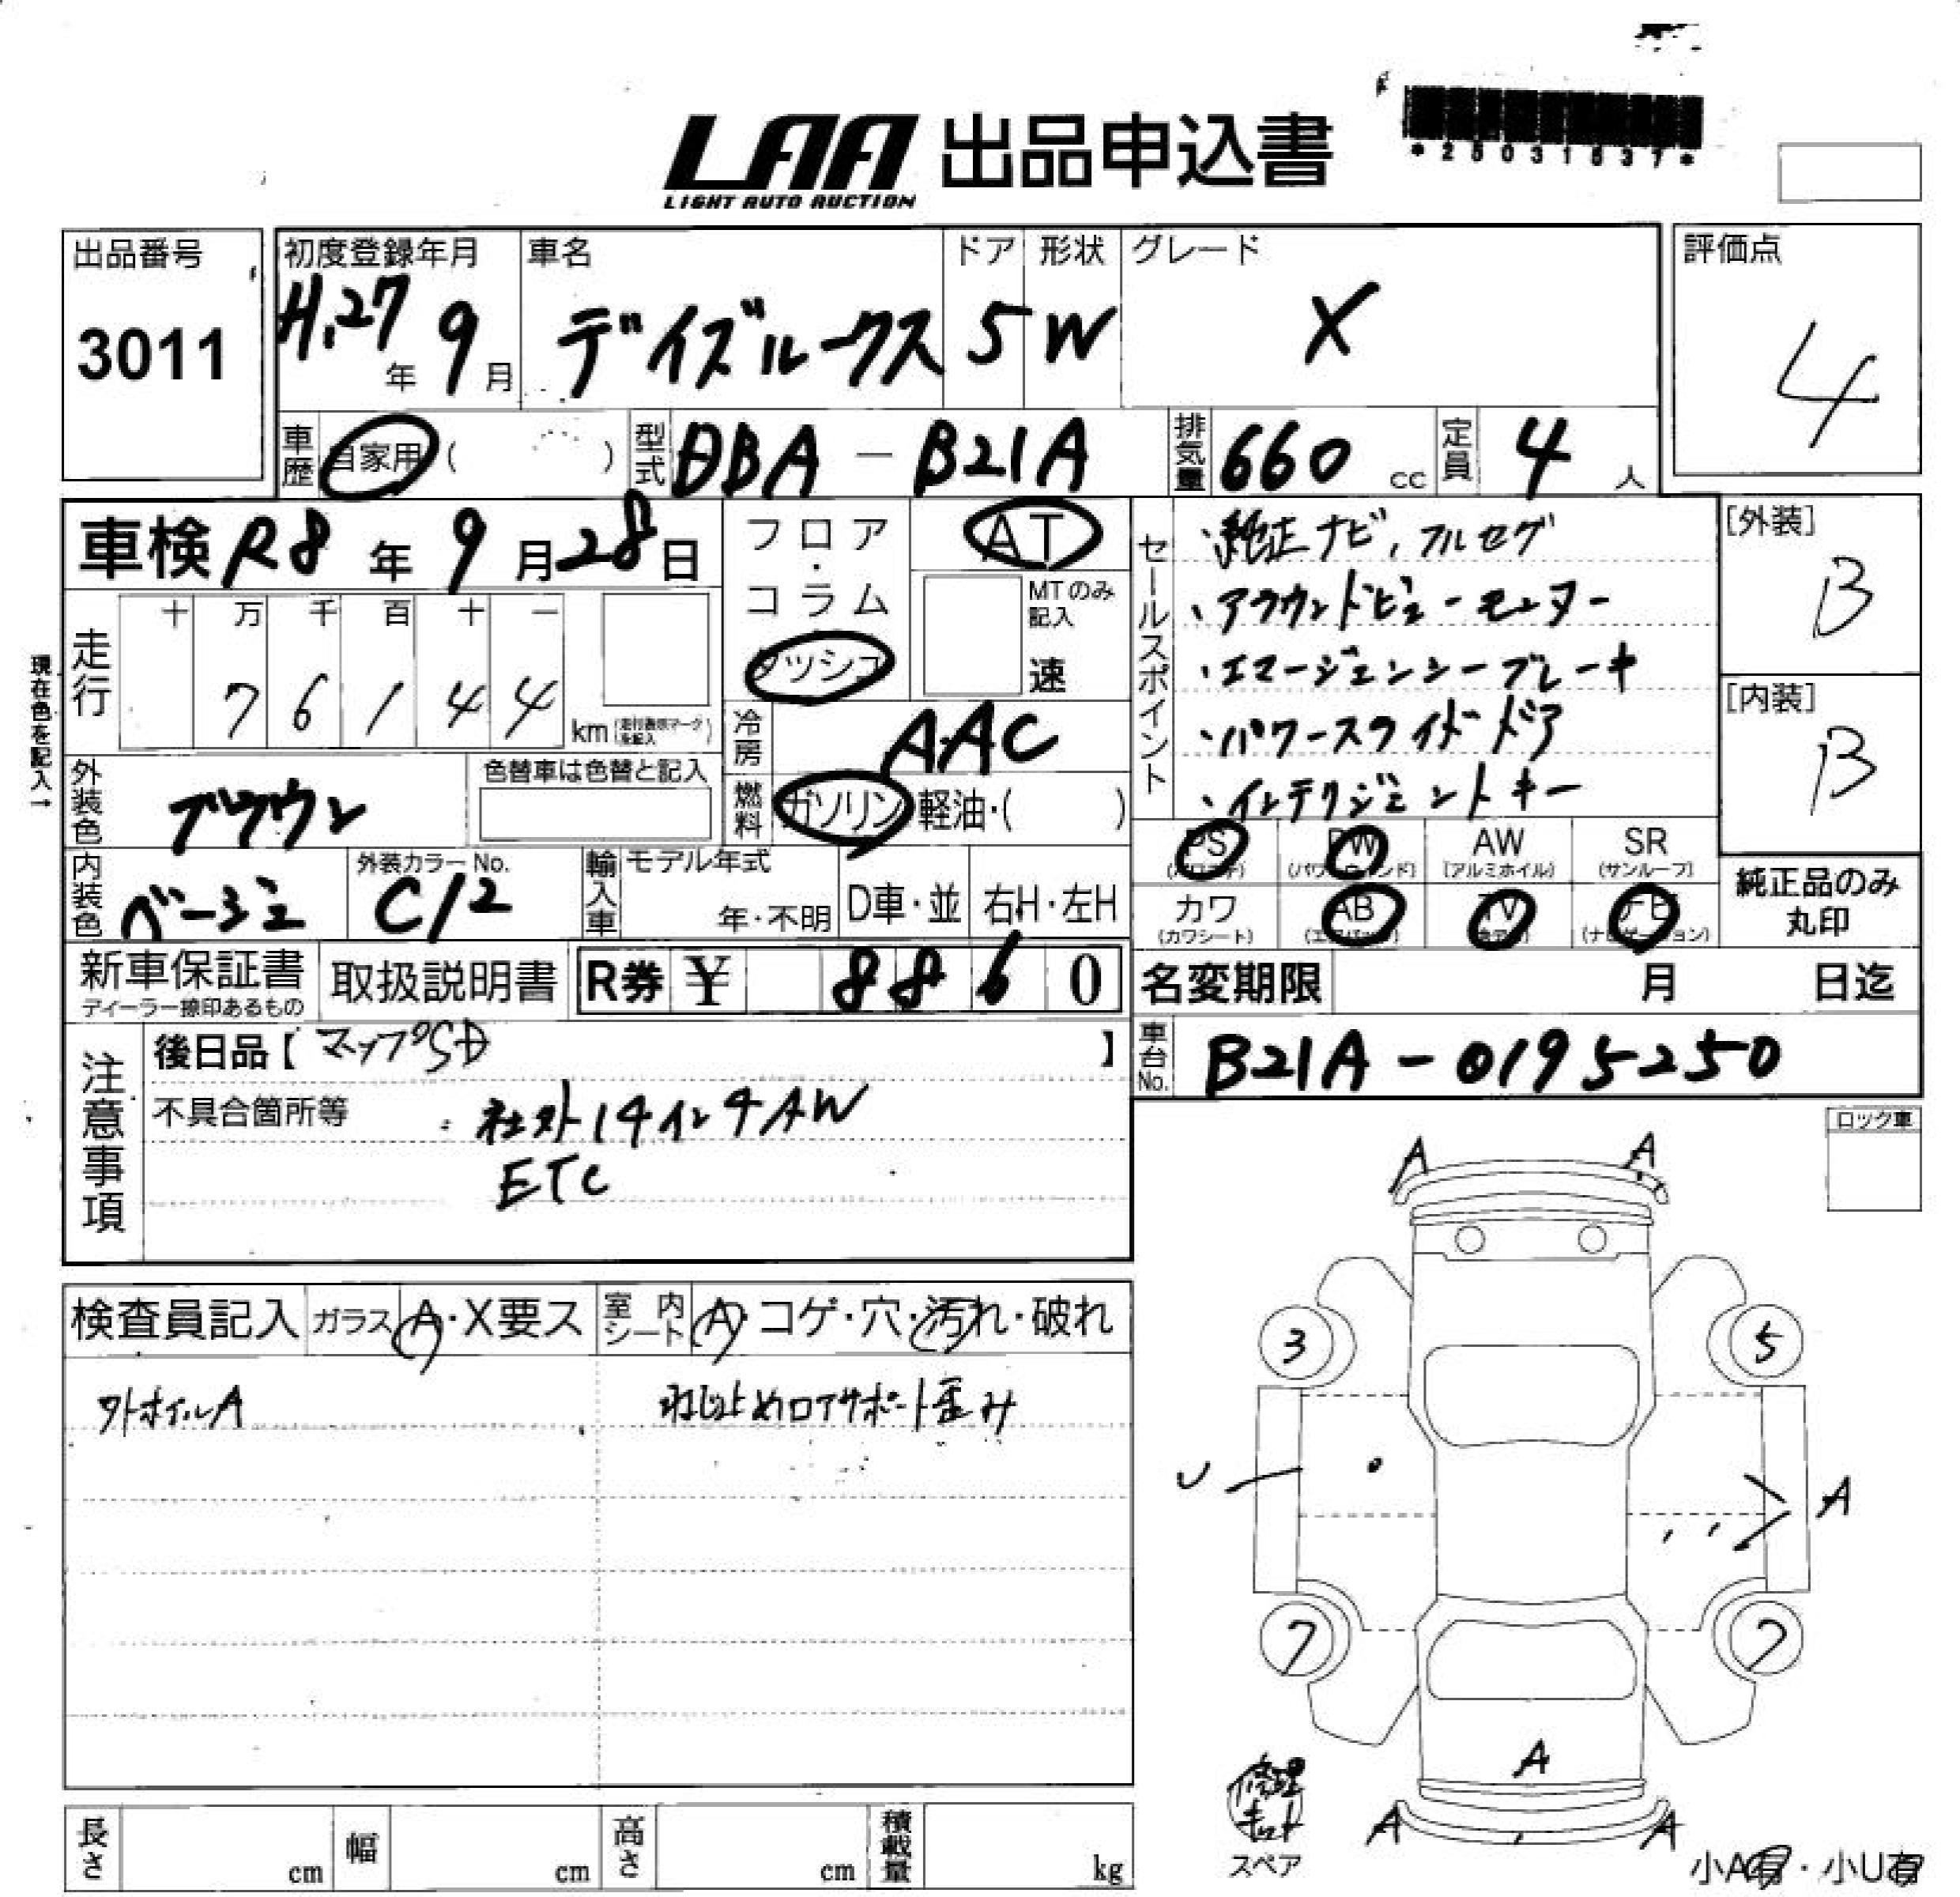 LAA 出品申込書
LIGHT AUTO AUCTION
*25031537*
出品番号
3011
初度登録年月
H.27年 9月
車名
デイズルークス
ドア
5
形状
W
グレード
X
評価点
4
車歴
自家用 ( )
型式
DBA - B21A
排気量
660 cc
定員
4 人
車検 R8年 9月 28日
フロア・コラム
ダッシュ
AT
MTのみ記入
速
セールスポイント
・純正ナビ, フルセグ
・アラウンドビューモニター
・エマージェンシーブレーキ
・パワースライドドア
・インテリジェントキー
[外装]
B
[内装]
B
現在色を記入→
走行
十 万 千 百 十 一
7 6 1 4 4 km
冷房
AAC
燃料
ガソリン・軽油・( )
外装色
ブラウン
色替車は色替と記入
内装色
ベージュ
外装カラーNo.
C12
輸入車
モデル年式
年・不明
D車・並
右H・左H
PS
PW
AW
(アルミホイル)
SR
(サンルーフ)
カワ
(カワシート)
AB
TV
ナビ
純正品のみ
丸印
新車保証書
ディーラー捺印あるもの
取扱説明書
R券 ¥ 8 8 6 0
名変期限 月 日迄
車台No.
B21A-0195250
注意事項
後日品【マップSD 】
不具合箇所等
・社外14インチAW
ETC
ロック車
検査員記入
ガラス A・X要ス
室内シート A・コゲ・穴・汚れ・破れ
外ホイルA
ねじ止めロアサポート歪み
A A
3 5
U
A
7 7
A
A A
修理キット
スペア
小A有・小U有
長さ cm
幅 cm
高さ cm
積載量 kg